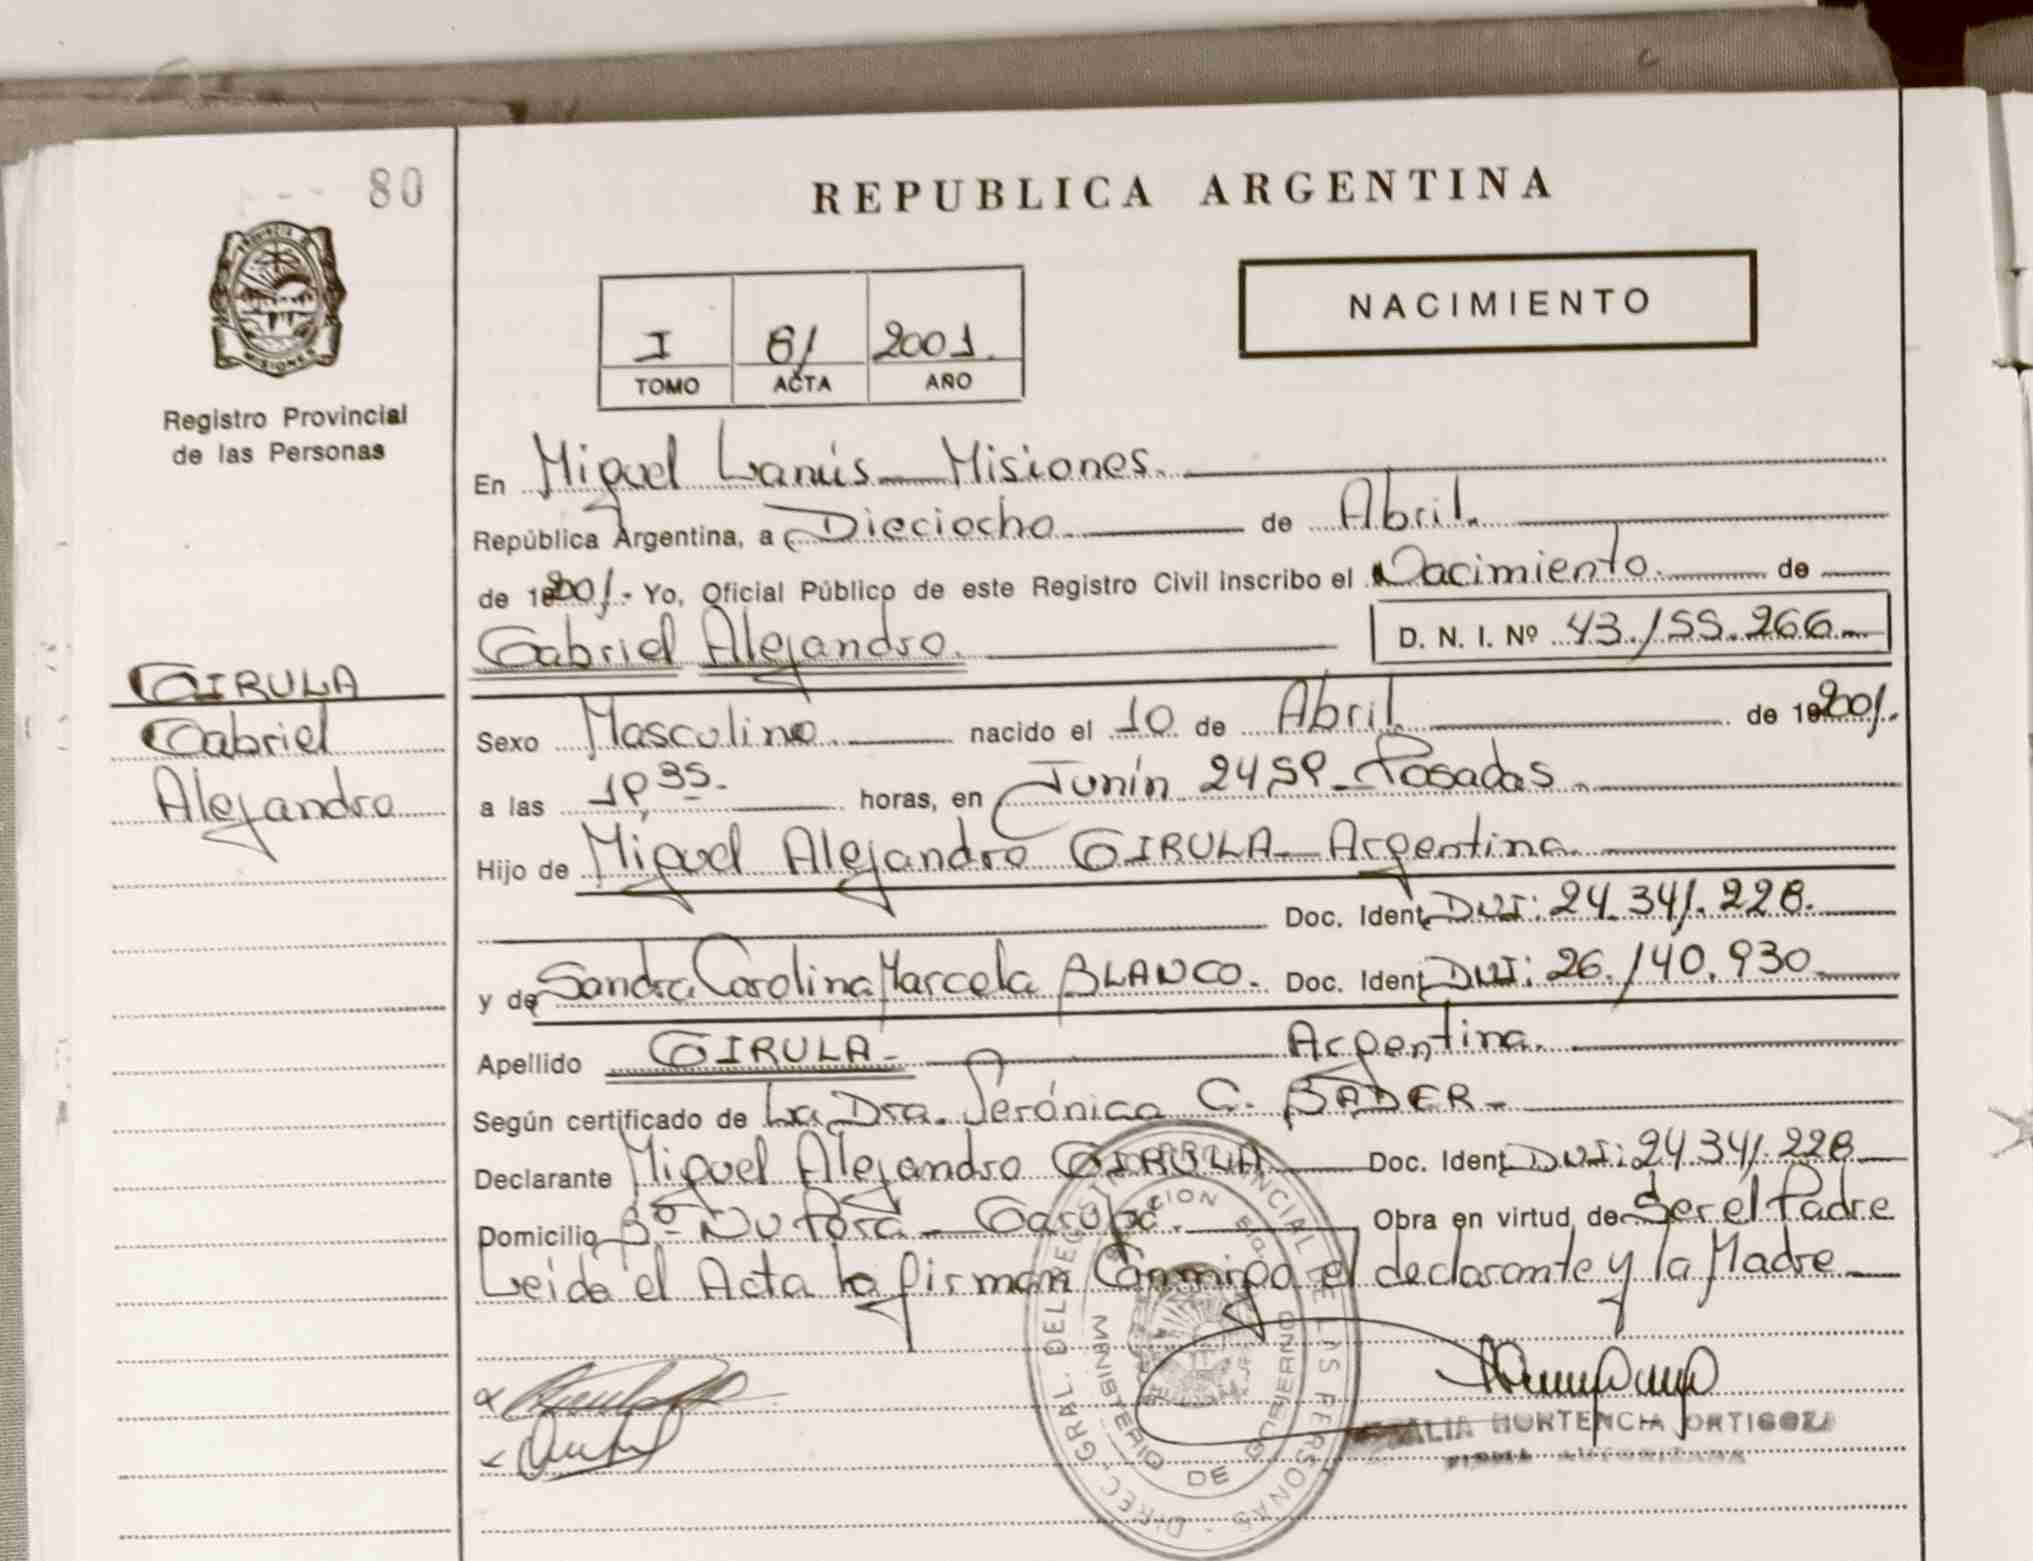 80
REPUBLICA ARGENTINA
NACIMIENTO
PROVINCIA DE MISIONES
Registro Provincial
de las Personas
I 81 2001.
TOMO ACTA AÑO
En Miguel Lanús Misiones.
República Argentina, a Dieciocho de Abril.
de 2001.- Yo, Oficial Público de este Registro Civil inscribo el Nacimiento. de
Gabriel Alejandro. D. N. I. Nº 43.155.266
GIRULA
Gabriel
Alejandro
Sexo Masculino. nacido el 10 de Abril. de 2001.
a las horas, en Junín Posadas
Hijo de Miguel Alejandro GIRULA Argentina
Doc. Ident. DNI: 24.341.228.
y de Sandra Carolina Marcela BLANCO. Doc. Ident. DNI: 26.140.930
Apellido GIRULA Argentina.
Según certificado de La Dra. Verónica C. BADER
Declarante Miguel Alejandro GIRULA Doc. Ident. DNI: 24.341.228
Domicilio Bº Ñu Porá Garupá. Obra en virtud de Ser el Padre
Leida el Acta la firman Conmigo el declarante y la Madre
DIREC. GRAL. DEL REGISTRO PROVINCIAL DE LAS PERSONAS
MINISTERIO DE GOBIERNO
HORTENCIA ORTIGOZA
FIRMA AUTORIZADA